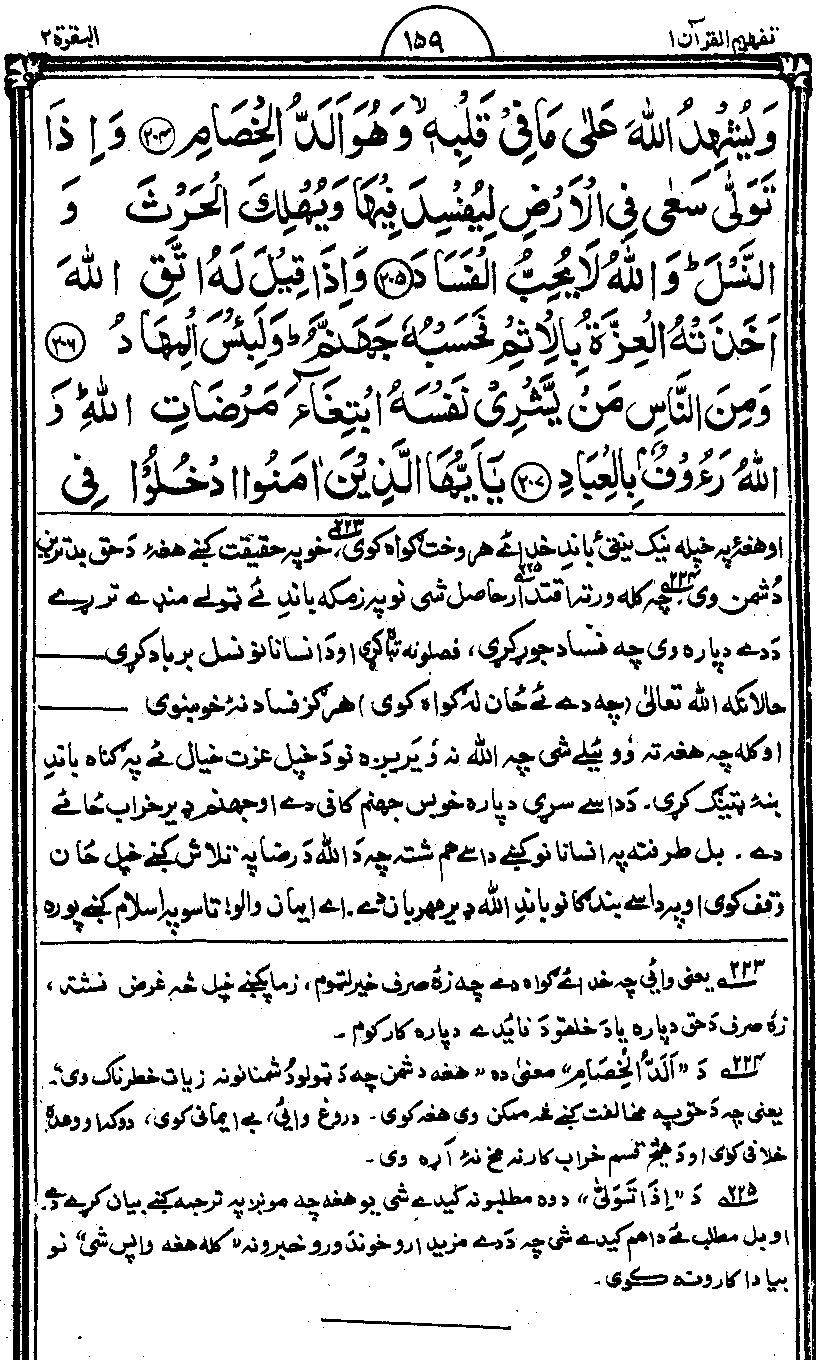 تفهيم القرآن ١
١٥٩
البقرة ٢
وَيُشْهِدُ اللهَ عَلٰى مَا فِيْ قَلْبِهٖ ۙ وَهُوَ اَلَدُّ الْخِصَامِ ﴿٢٠٤﴾ وَاِذَا
تَوَلّٰى سَعٰى فِي الْاَرْضِ لِيُفْسِدَ فِيْهَا وَيُهْلِكَ الْحَرْثَ وَ
النَّسْلَ ؕ وَاللهُ لَا يُحِبُّ الْفَسَادَ ﴿٢٠٥﴾ وَاِذَا قِيْلَ لَهُ اتَّقِ اللهَ
اَخَذَتْهُ الْعِزَّةُ بِالْاِثْمِ فَحَسْبُهٗ جَهَنَّمُ ؕ وَلَبِئْسَ الْمِهَادُ ﴿٢٠٦﴾
وَمِنَ النَّاسِ مَنْ يَّشْرِيْ نَفْسَهُ ابْتِغَآءَ مَرْضَاتِ اللهِ ؕ وَ
اللهُ رَءُوْفٌۢ بِالْعِبَادِ ﴿٢٠٧﴾ يٰٓاَيُّهَا الَّذِيْنَ اٰمَنُوا ادْخُلُوْا فِي
او هغهٔ په خپله نیک نیتئ باندِ خدائے هر وخت ګواه کوی ٢٢٣، خو په حقیقت کښے هغهٔ دَ حق بدترین
دُشمن وی ٢٢٤۔ چه کله ورته اقتدار حاصل شی ٢٢٥ نو په زمکه باندِ ئے ټولے منډے تررے
دَدے دپاره وی چه فساد جوړ کړی، فصلونه تباه کړی او دَ انسانانو نسل برباد کړی
حالانکه الله تعالیٰ (چه دے ئے ځان لهٔ ګواه کوی) هرګز فساد نهٔ خوښوی
او کله چه هغه ته وُوئیلے شی چه الله نه وُیریږه نو دَ خپل عزت خیال ئے په ګناه باندِ
بنهٔ ټینګ کړی۔ دَ داسے سړی دپاره خو بس جهنم کافی دے او جهنم ډیر خراب ځائے
دے۔ بل طرف ته په انسانانو کښے داسے هم شته چه دَ الله دَ رضا په تلاش کښے خپل ځان
وقف کوی او په داسے بندګانو باندِ الله ډیر مهربان دے۔ اے ایمان والو! تاسو په اسلام کښے پوره
٢٢٣ یعنی وائی چه خدائے ګواه دے چه زهٔ صرف خیر لټوم، زما پکښے خپل څه غرض نشته،
زهٔ صرف دَ حق دپاره یا دَ خلقو دَ فائیدے دپاره کار کوم۔
٢٢٤ دَ "اَلَدُّ الْخِصَامِ" معنیٰ ده "هغه دشمن چه دَ ټولو دُشمنانو نه زیات خطرناک وی"۔
یعنی چه دَ حق په مخالفت کښے څه ممکن وی هغه کوی۔ دروغ وائی، بے ایمانی کوی، دوکه او وعده
خلافی کوی او دَ هیڅ قسم خراب کار نه مخ نهٔ اړه وی۔
٢٢٥ دَ "اِذَا تَوَلّٰى" دوه مطلبونه کیدے شی یو هغه چه مونږ په ترجمه کښے بیان کړے دے۔
او بل مطلب ئے دا هم کیدے شی چه دَدے مزیدارو خوندورو خبرو نه "کله هغه واپس شی" نو
بیا دا کارونه کوی۔